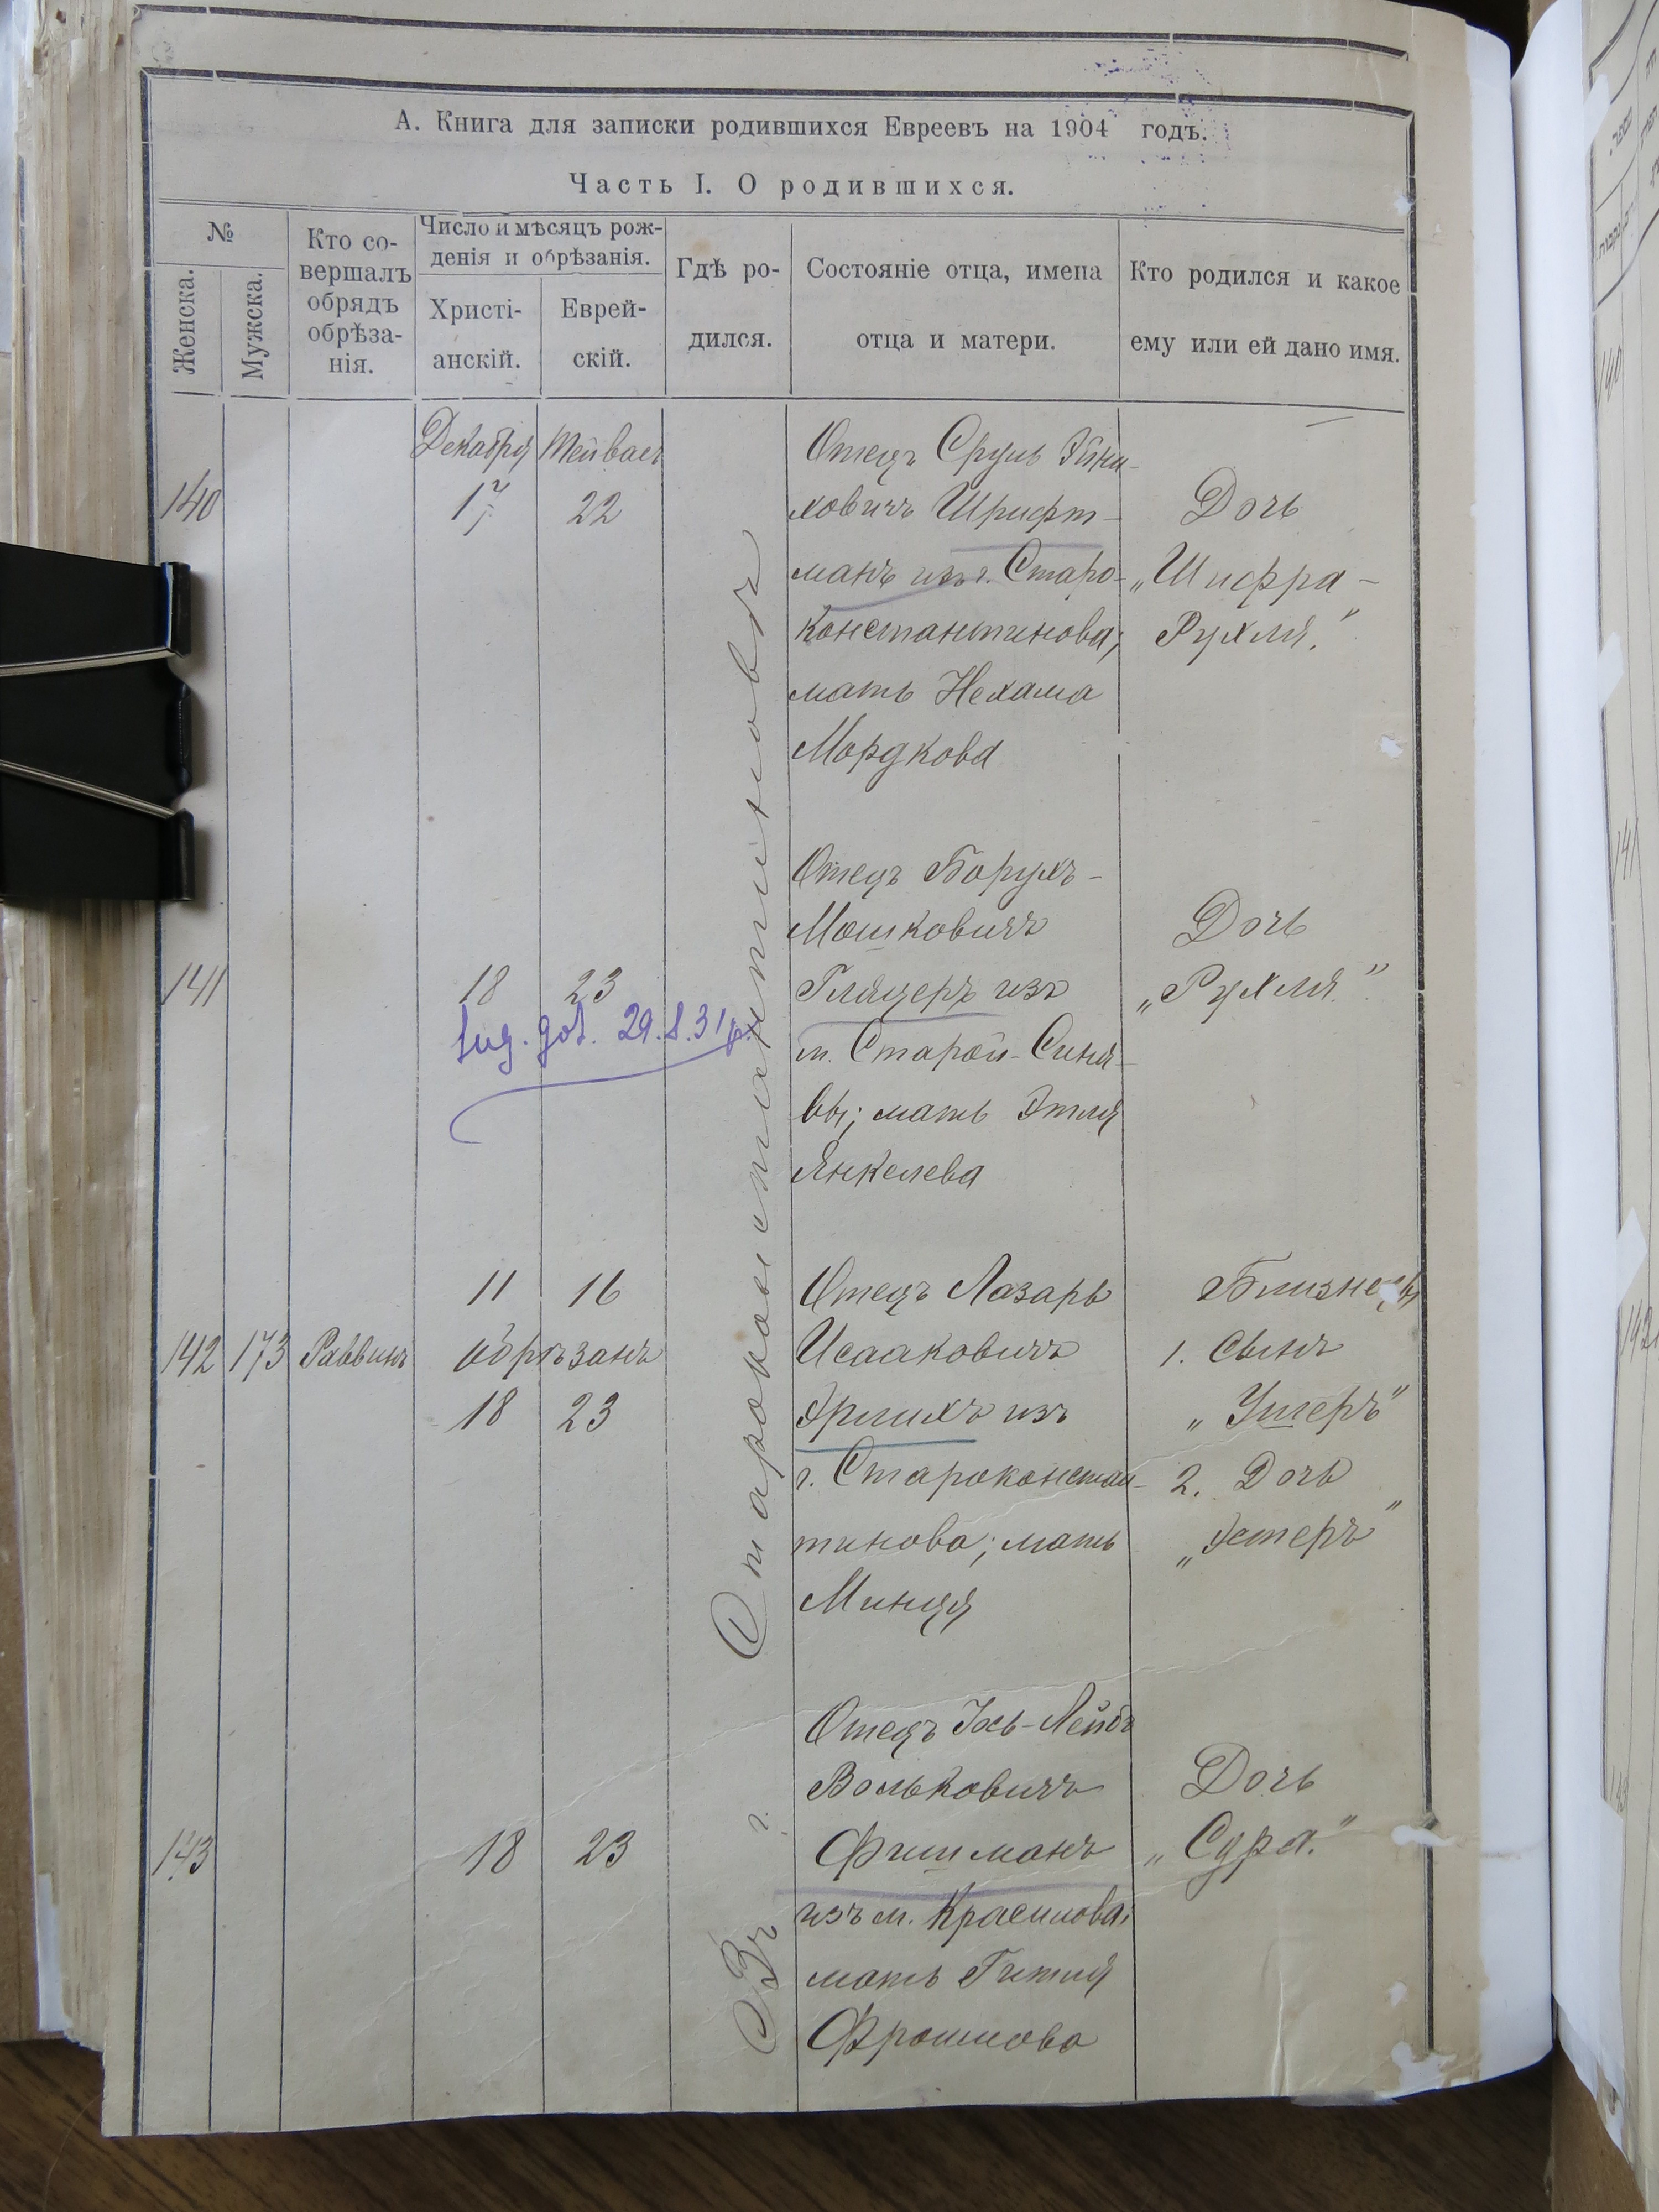 А. Книга для записки родившихся Евреевъ на 1904 годъ.
Часть I. О родившихся.
№
Женска.
Мужска.
Кто со-
вершалъ
обрядъ
обрѣза-
нія.
Число и мѣсяцъ рож-
денія и обрѣзанія.
Христі-
анскій.
Еврей-
скій.
Гдѣ ро-
дился.
Состояніе отца, имена
отца и матери.
Кто родился и какое
ему или ей дано имя.
Въ г. Староконстантиновѣ
Декабря Тейвасъ
140 17 22
Отецъ Сруль
ховичъ Шрифт-
манъ изъ г. Старо-
константинова;
мать Нехама
Мордкова
Дочь
„Шифра-
Рухля."
141 18 23
29.8.31
Отецъ Борухъ-
Мошковичъ
Гляцеръ изъ
м. Старой-Синя-
вы; мать Этля
Янкелева
Дочь
„Рухля."
11 16
142 173 Раввинъ обрѣзанъ
18 23
Отецъ Лазарь
Исааковичъ
Эрлихъ изъ
г. Староконстан-
тинова; мать
Миндя
Близнецы
1. Сынъ
„Ушеръ"
2. Дочь
„Эстеръ"
143 18 23
Отецъ Іось-Лейбъ
Вольковичъ
Фишманъ
изъ м. Красилова;
мать Гитля
Фроимова
Дочь
„Сура."
140
141
142
143